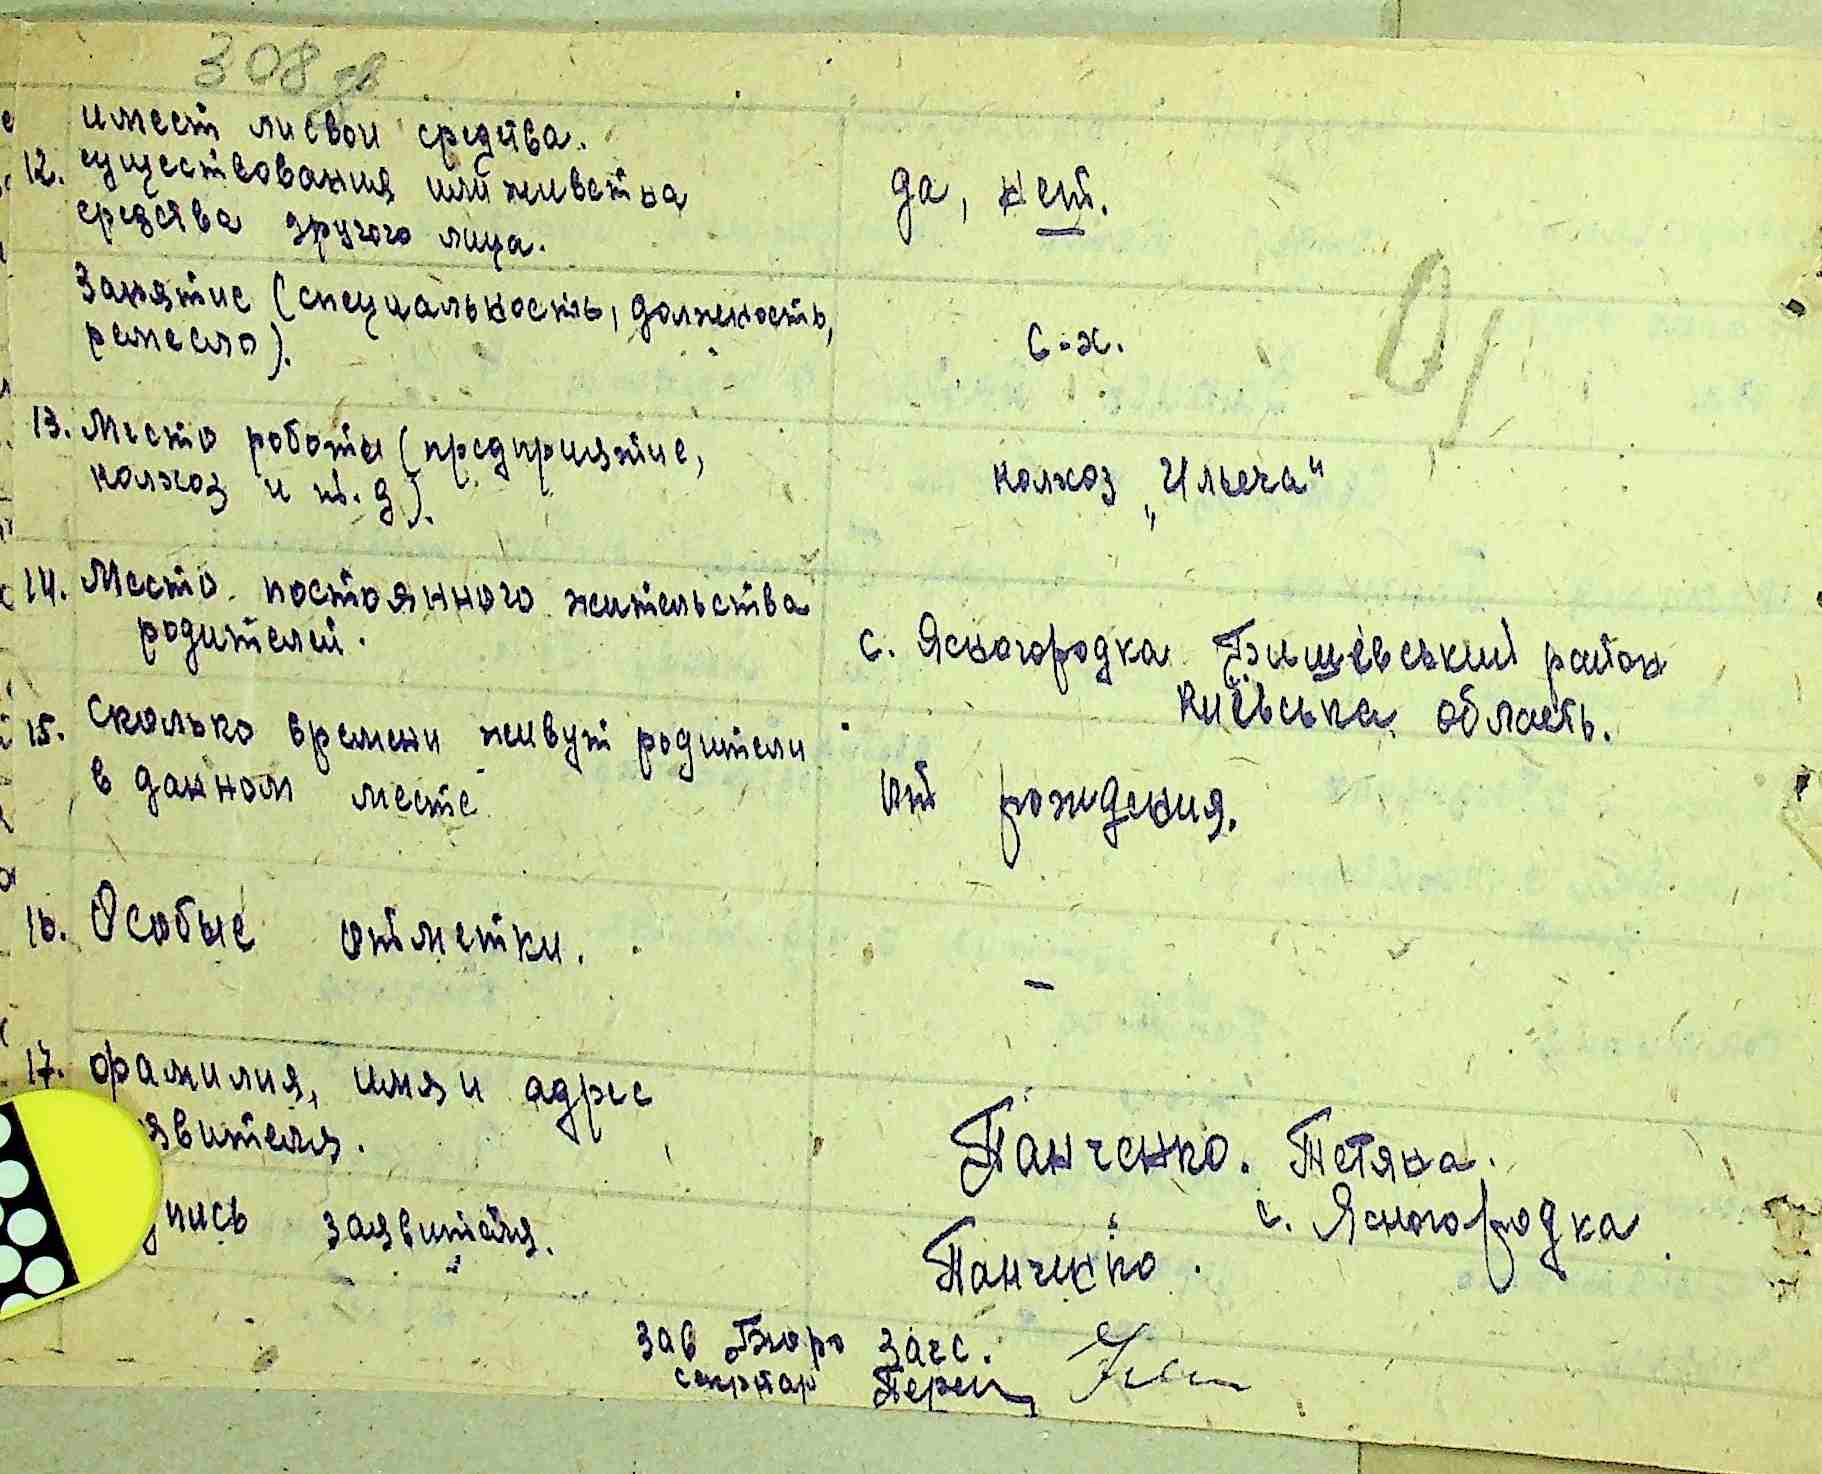 308 зв
имеет ли свои средства.
12. существования или живет на
средства другого лица.
да, нет.
Занятие (специальность, должность,
ремесло).
с-х.
13. Место роботы (предприятие,
колхоз и т. д).
колхоз „Ильеча"
14. Место постоянного жительства
родителей.
с. Ясногородка Бишевський район
Киевська область.
15. Сколько времени живут родители
в данном месте
от рождения.
16. Особые отметки.
–
17. Фамилия, имя и адрес
явителя.
Панченко. Тетяна.
с. Ясногородка
пись заявителя.
Панченко.
Зав Бюро Загс.
секретар